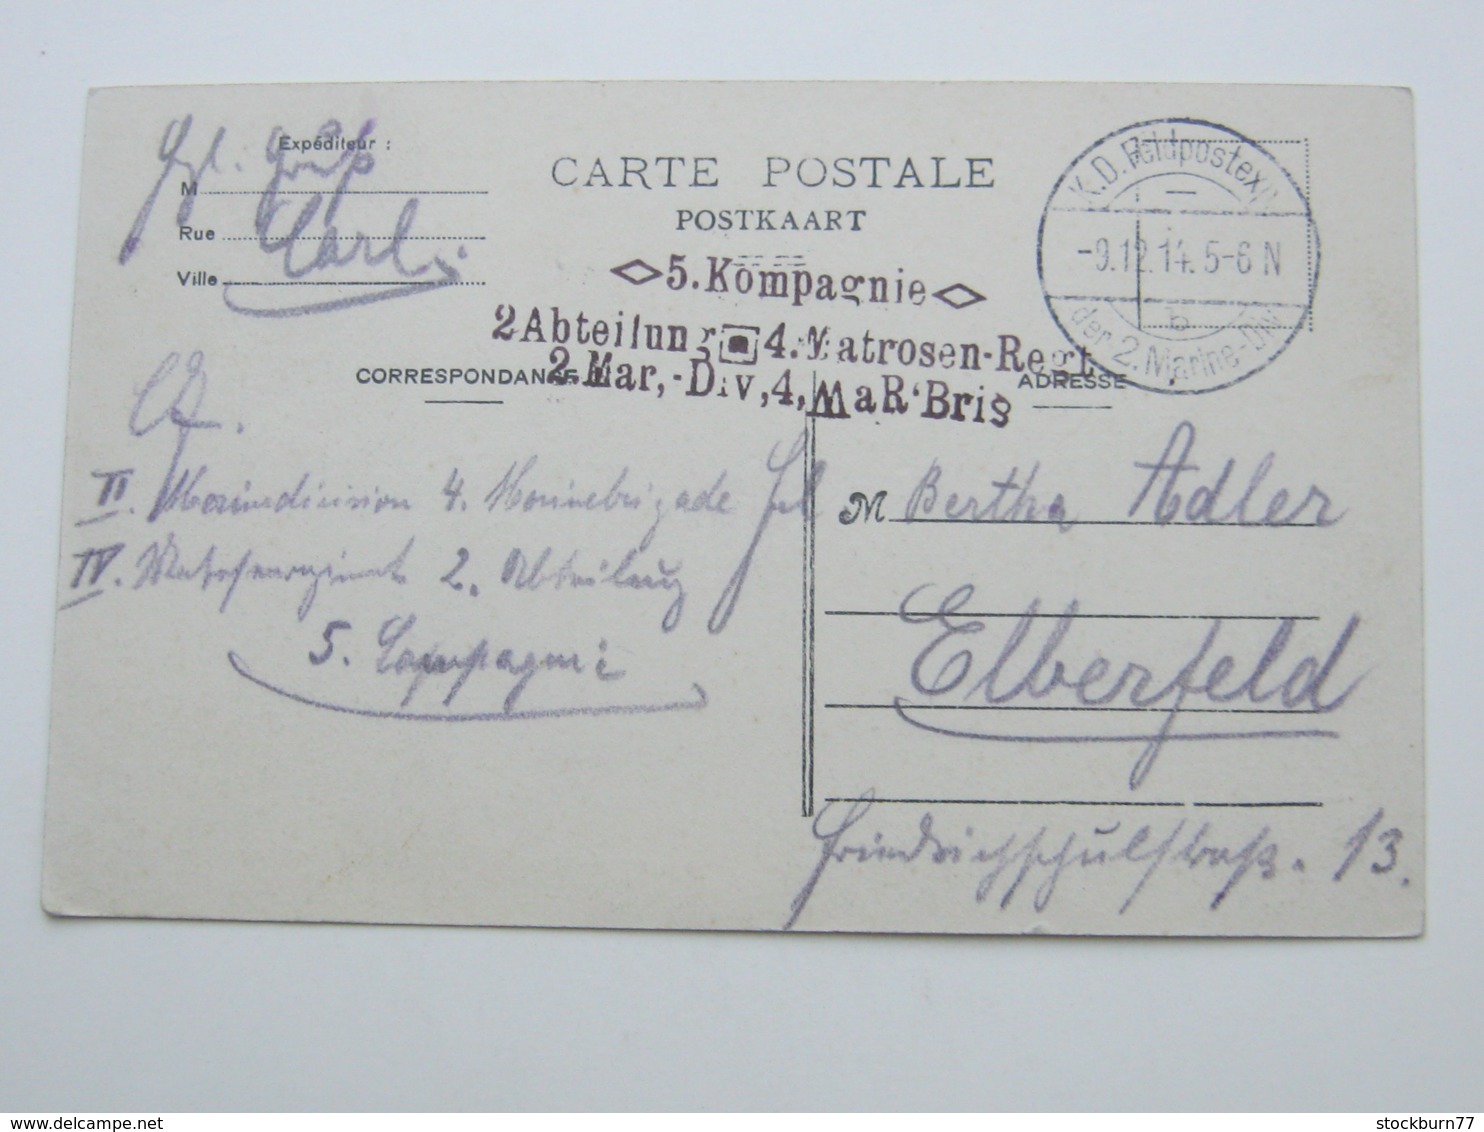 Hzl. Gruß
Carl.
Expéditeur :
M
Rue
Ville
CARTE POSTALE
POSTKAART
K.D. Feldpostexp.
-9.12.14. 5-6 N
b
der 2. Marine-Div.
5. Kompagnie
2 Abteilung 4. Matrosen-Regt.
2. Mar,-Div, 4, MaR'Bris
CORRESPONDANCE
ADRESSE
II. Marinedivision 4. Marinebrigade
IV. Matrosenregiment 2. Abteilung
5. Compagnie
M Bertha Adler
Elberfeld
Friedrichschulstraße. 13.
delcampe.net
stockburn77